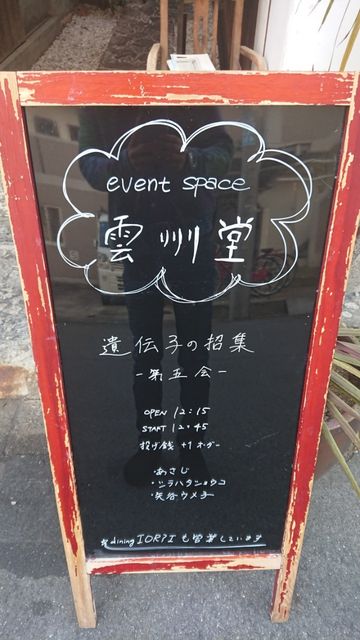 event space
雲州堂
遺伝子の招集
-第五会-
OPEN 12:15
START 12:45
投げ銭 +1オーダー
・あさじ
・シラハタショウコ
・矢谷ウメ子
★dining IORI も営業しています